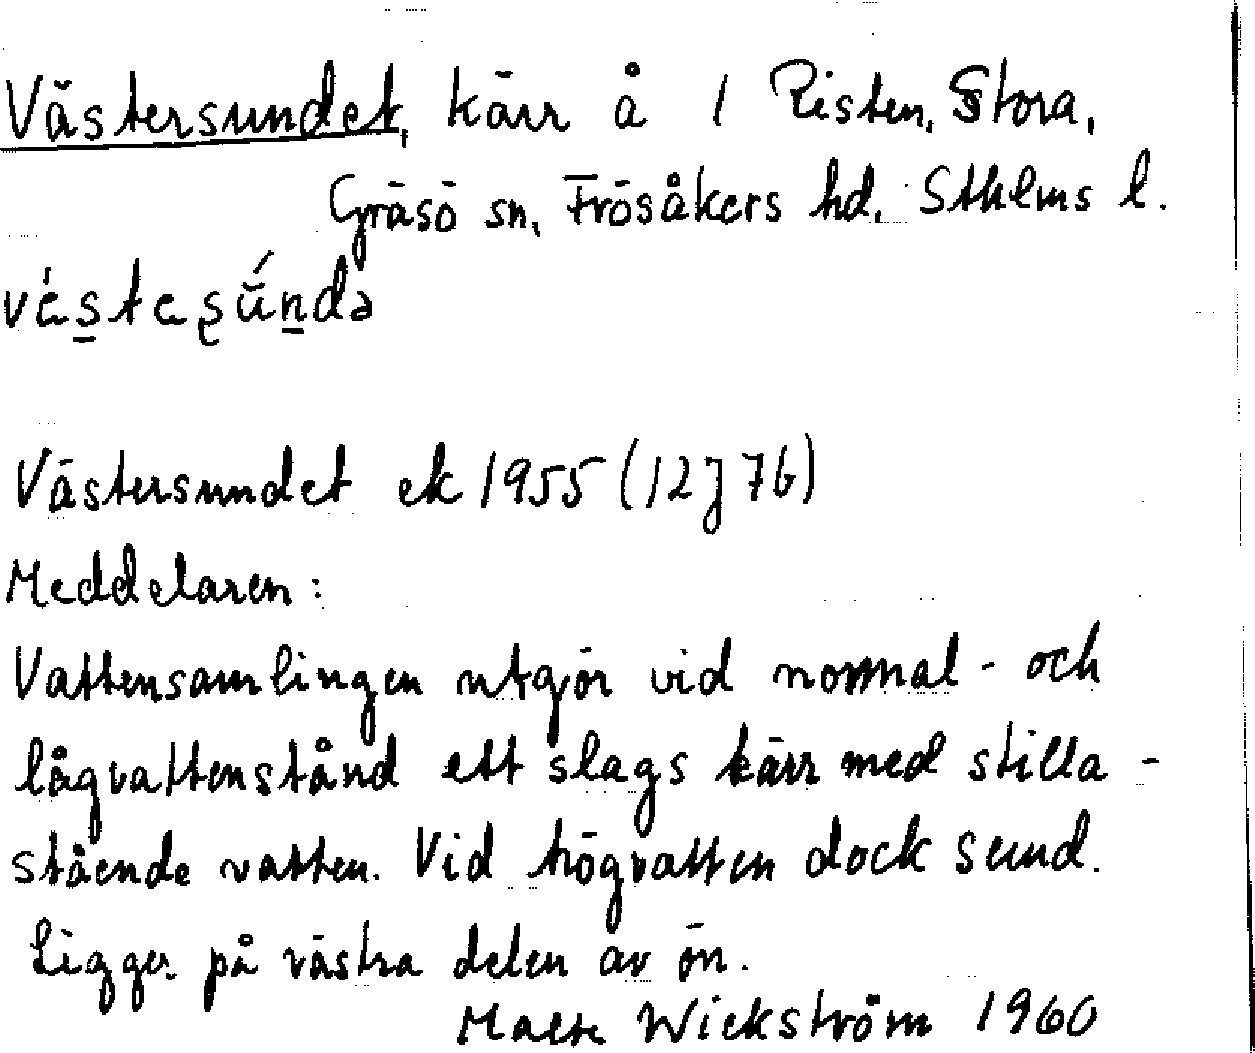 Västersundet, kärr å 1 Risten, Stora,
Gräsö sn, Frösåkers hd, Sthlms l.
Västersundet ek 1955 (12 J 7b)
Meddelaren:
Vattensamlingen utgör vid normal- och
lågvattenstånd ett slags kärr med stilla-
stående vatten. Vid högvatten dock sund.
Ligger på västra delen av ön.
Wickström 1960